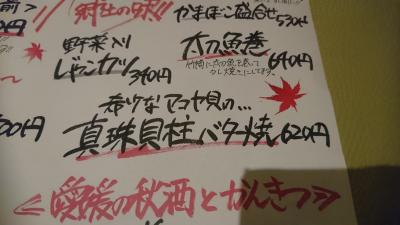 前>
郷土の味!!
かまぼこ盛合せ530円
野菜入り
じゃこカツ 390円
太刀魚巻 690円
竹桐に太刀魚を巻いて
カレ焼きにしてます。
希少なアコヤ貝の...
真珠貝柱バター焼 620円
00円
<<愛媛の秋酒とかんきつ>>